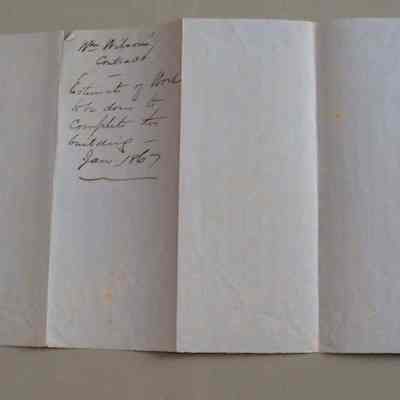 Wm Wilson's
Contract
Estimate of Work
to be done to
Complete the
building -
Jan 1867